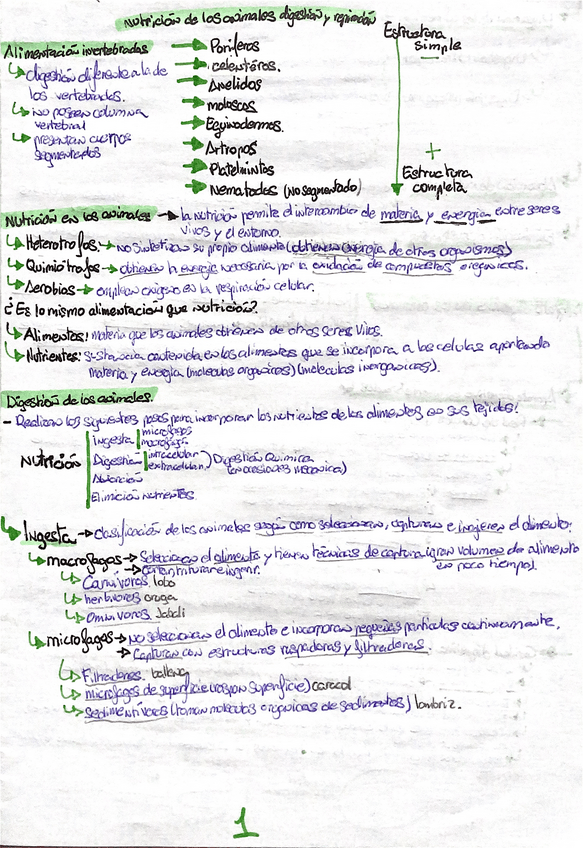 Nutrición de los animales digestión y repiración
Alimentación invertebrados
digestión diferente a la de
los vertebrados.
no poseen columna
vertebral
presentan cuerpos
segmentados
Poríferos
celentéros.
Anelidos
moloscos
Equinodermos.
Artropos
Platelmintos
Nematodes (no segmentado)
Estructura
simple
+
Estructura
completa
Nutrición en los animales → la nutrición permite el intercambio de materia y energía entre seres
vivos y el entorno.
Heterotrofos → no sintetizan su propio alimento (obtienen energía de otros organismos)
Quimiótrofos → obtienen la energía necesaria por la oxidación de compuestos organicos.
Aerobios → emplean oxigeno en la respiración celular.
¿Es lo mismo alimentación que nutrición?
Alimentos: materia que los animales obtienen de otros seres vivos.
Nutrientes: sustancia contenida en los alimentos que se incorpora a las celulas aportando
materia y energía (moleculas organicas) (moleculas inorganicas).
Digestión de los animales.
- Realizan los siguientes pasos para incorporar los nutrientes de los alimentos en sus tejidos:
Nutrición
Ingesta
microfagos
macrofagos
Digestión
intracelular
extracelular
) Digestión Química
(en ocasiones mecanica)
Absorción
Elimición nutrientes.
Ingesta → clasificación de los animales según como seleccionan, capturan e ingieren el alimento:
macrofagos → Seleccionan el alimento y tienen técnicas de captura (gran volumen de alimento
en poco tiempo).
→ Cortan, trituran e ingerir.
Carnívoros. lobo
herbivoros oruga
Omnívoros. Jabalí
microfagos → No seleccionan el alimento e incorporan pequeñas particulas continuamente.
→ Capturan con estructuras raspadoras y filtradoras.
Filtradores. ballena
microfagos de superficie (raspan superficie) caracol
Sedimentívoros (toman moleculas organicas de sedimentos) lombriz.
1